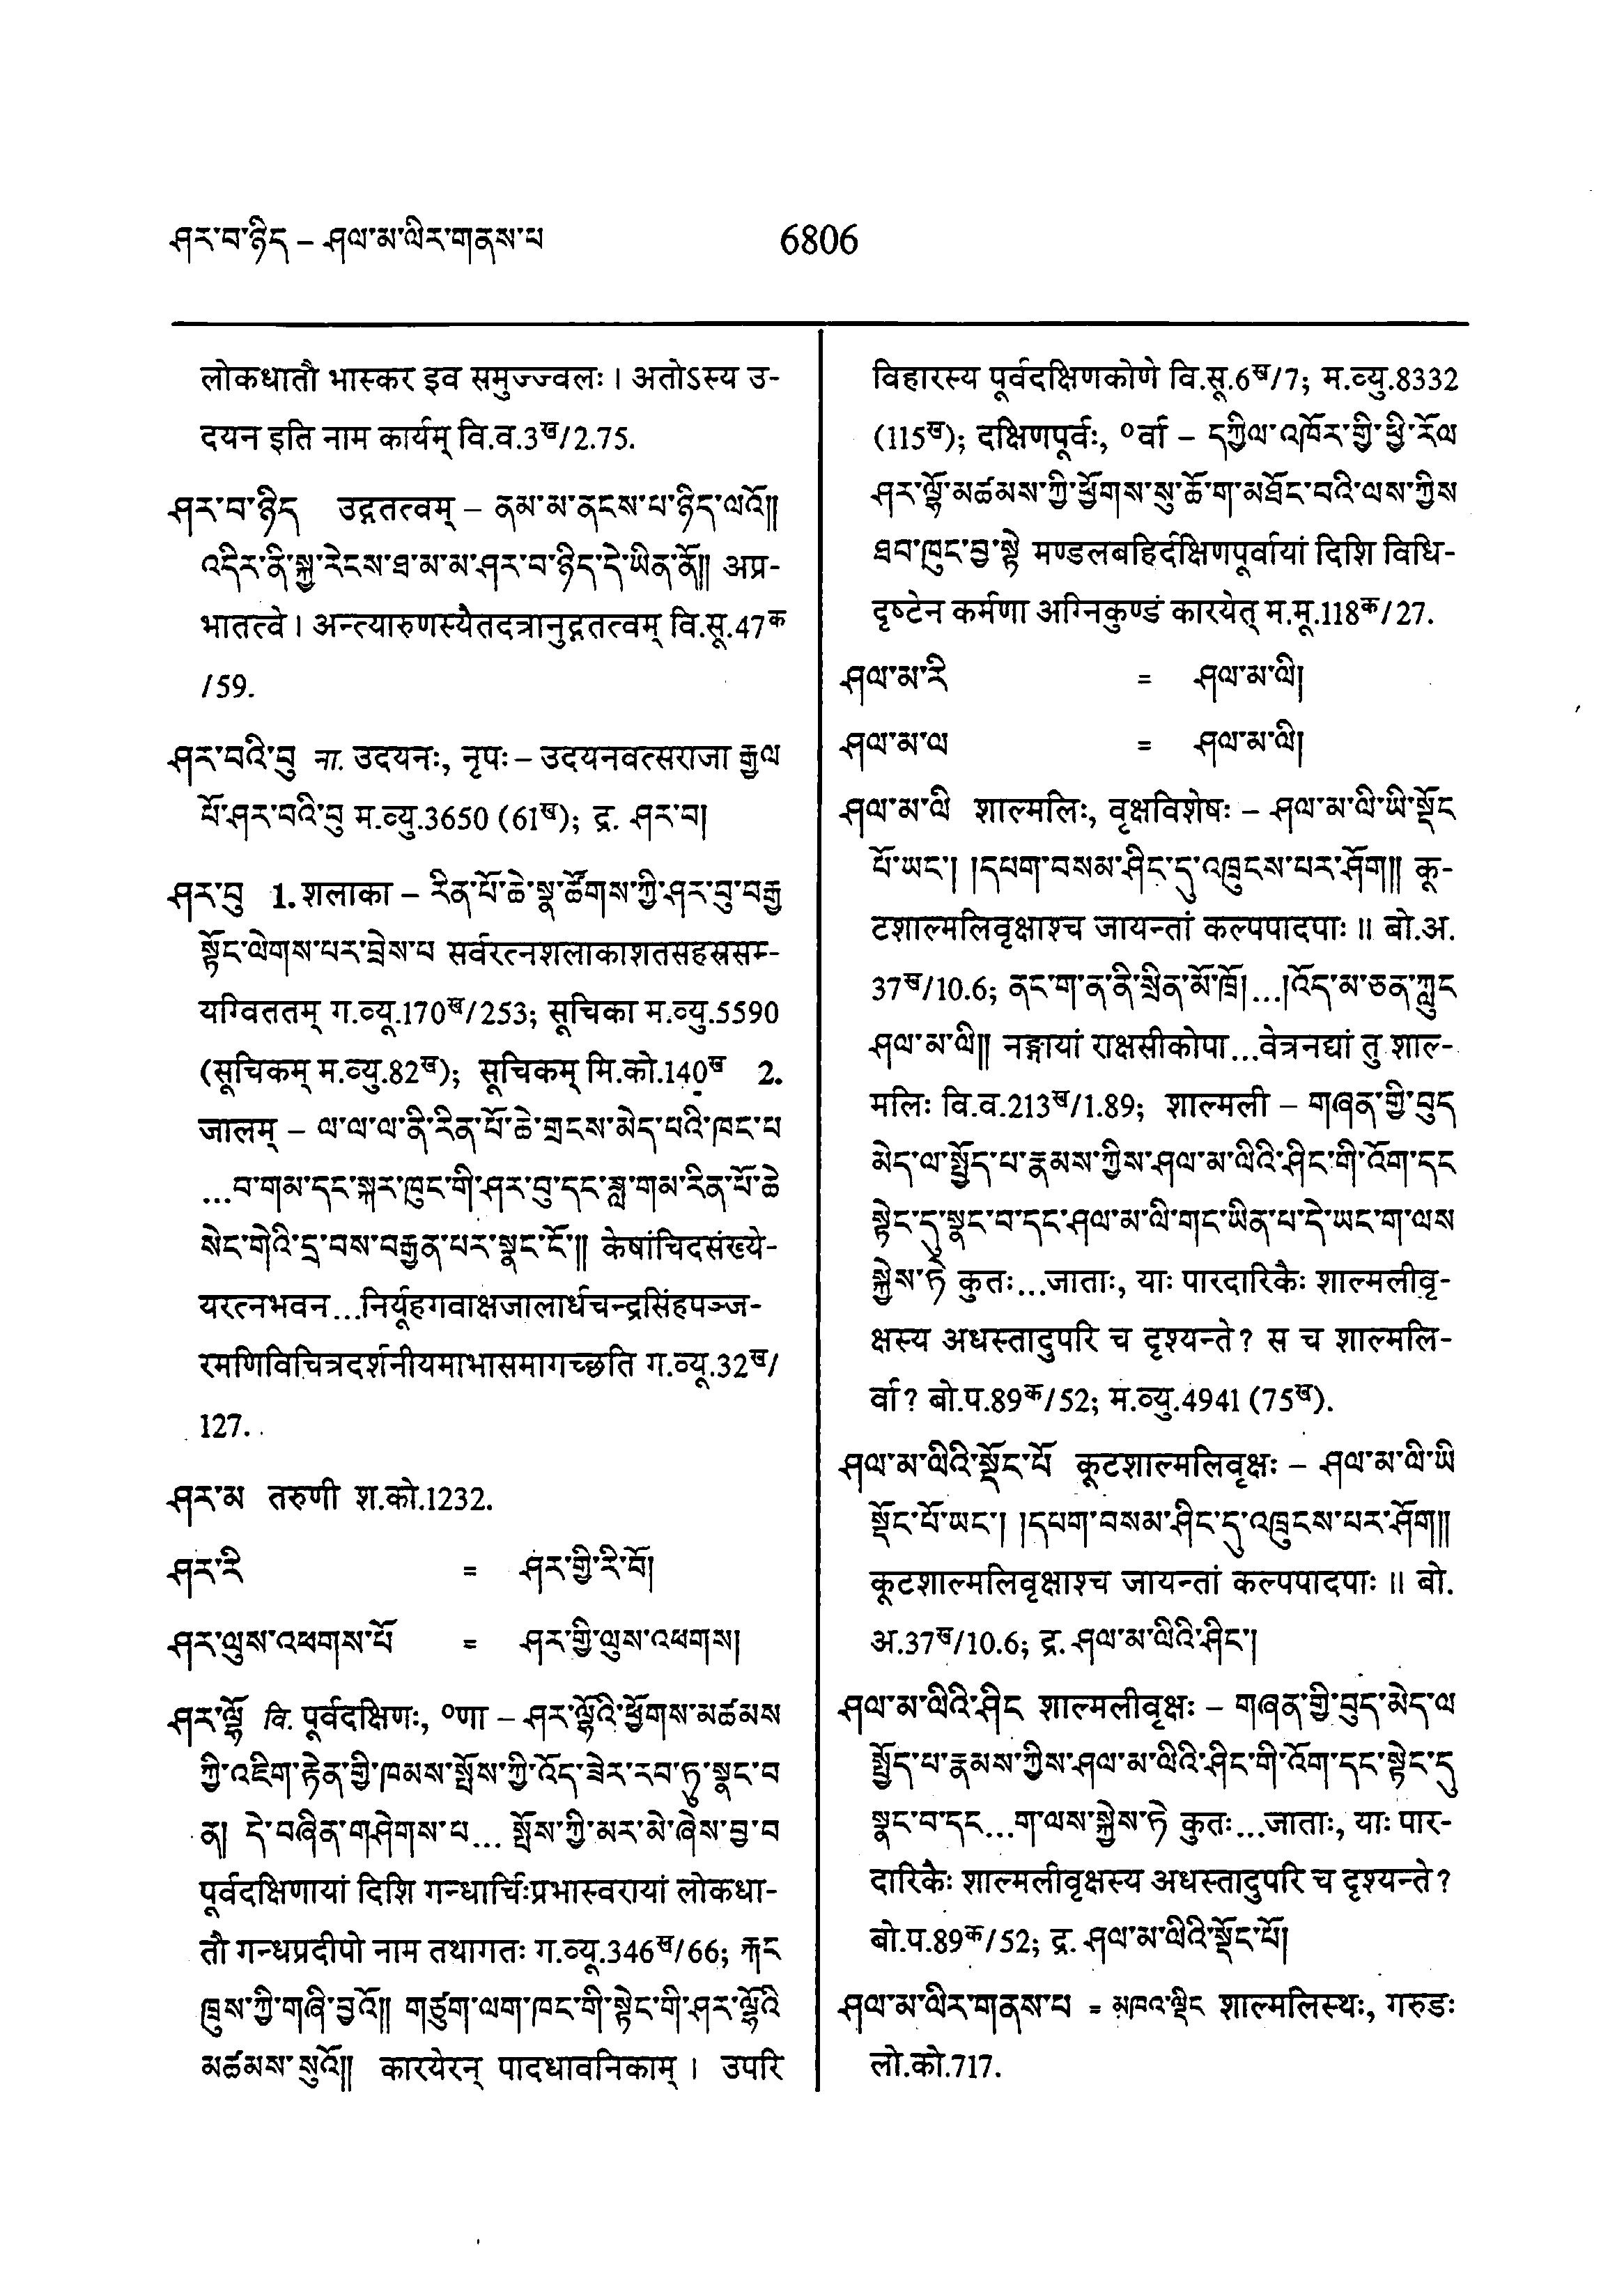 ཤར་བ་ཉིད – ཤལ་མ་ལིར་གནས་པ
6806
लोकधातौ भास्कर इव समुज्ज्वलः । अतोऽस्य उ-
दयन इति नाम कार्यम् वि.व.3ख/2.75.
ཤར་བ་ཉིད उद्गतत्वम् – ནམ་མ་ནངས་པ་ཉིད་ལའོ།།
འདིར་ནི་སྐྱ་རེངས་ཐ་མ་མ་ཤར་བ་ཉིད་དེ་ཡིན་ནོ།། अप्र-
भातत्वे । अन्त्यारुणस्यैतदत्रानुद्गतत्वम् वि.सू.47क
/59.
ཤར་བའི་བུ ना. उदयनः, नृपः – उदयनवत्सराजा རྒྱལ
པོ་ཤར་བའི་བུ म.व्यु.3650 (61ख); द्र. ཤར་བ།
ཤར་བུ 1. शलाका – རིན་པོ་ཆེ་སྣ་ཚོགས་ཀྱི་ཤར་བུ་བརྒྱ
སྟོང་ལེགས་པར་བྲེས་པ सर्वरत्नशलाकाशतसहस्रसम्-
यग्विततम् ग.व्यू.170ख/253; सूचिका म.व्यु.5590
(सूचिकम् म.व्यु.82ख); सूचिकम् मि.को.140ख 2.
जालम् – ལ་ལ་ལ་ནི་རིན་པོ་ཆེ་གྲངས་མེད་པའི་ཁང་པ
...བ་གམ་དང་སྐར་ཁུང་གི་ཤར་བུ་དང་ཟླ་གམ་རིན་པོ་ཆེ
སེང་གེའི་དྲ་བས་བརྒྱན་པར་སྣང་ངོ་།། केषांचिदसंख्ये-
यरत्नभवन...निर्यूहगवाक्षजालार्धचन्द्रसिंहपञ्ज-
रमणिविचित्रदर्शनीयमाभासमागच्छति ग.व्यू.32ख/
127.
ཤར་མ तरुणी श.को.1232.
ཤར་རི = ཤར་གྱི་རི་བོ།
ཤར་ལུས་འཕགས་པོ = ཤར་གྱི་ལུས་འཕགས།
ཤར་ལྷོ वि. पूर्वदक्षिणः, ०णा – ཤར་ལྷོའི་ཕྱོགས་མཚམས
ཀྱི་འཇིག་རྟེན་གྱི་ཁམས་སྤོས་ཀྱི་འོད་ཟེར་རབ་ཏུ་སྣང་བ
ན། དེ་བཞིན་གཤེགས་པ... སྤོས་ཀྱི་མར་མེ་ཞེས་བྱ་བ
पूर्वदक्षिणायां दिशि गन्धार्चिःप्रभास्वरायां लोकधा-
तौ गन्धप्रदीपो नाम तथागतः ग.व्यू.346ख/66; རྐང
ཁྲུས་ཀྱི་གཞི་བྱའོ།། གཙུག་ལག་ཁང་གི་སྟེང་གི་ཤར་ལྷོའི
མཚམས་སུའོ།། कारयेरन् पादधावनिकाम् । उपरि
विहारस्य पूर्वदक्षिणकोणे वि.सू.6ख/7; म.व्यु.8332
(115ख); दक्षिणपूर्वः, ०र्वा – དཀྱིལ་འཁོར་གྱི་ཕྱི་རོལ
ཤར་ལྷོ་མཚམས་ཀྱི་ཕྱོགས་སུ་ཆོ་ག་མཐོང་བའི་ལས་ཀྱིས
ཐབ་ཁུང་བྱ་སྟེ मण्डलबहिर्दक्षिणपूर्वायां दिशि विधि-
दृष्टेन कर्मणा अग्निकुण्डं कारयेत् म.मू.118क/27.
ཤལ་མ་རི = ཤལ་མ་ལི།
ཤལ་མ་ལ = ཤལ་མ་ལི།
ཤལ་མ་ལི शाल्मलिः, वृक्षविशेषः – ཤལ་མ་ལི་ཡི་སྡོང
པོ་ཡང་། །དཔག་བསམ་ཤིང་དུ་འཁྲུངས་པར་ཤོག།། कू-
टशाल्मलिवृक्षाश्च जायन्तां कल्पपादपाः ॥ बो.अ.
37ख/10.6; ནང་ག་ན་ནི་སྲིན་མོ་ཁྲོ།...།འོད་མ་ཅན་ཀླུང
ཤལ་མ་ལི།། नङ्गायां राक्षसीकोपा...वेत्रनद्यां तु शाल्-
मलिः वि.व.213ख/1.89; शाल्मली – གཞན་གྱི་བུད
མེད་ལ་སྤྱོད་པ་རྣམས་ཀྱིས་ཤལ་མ་ལིའི་ཤིང་གི་འོག་དང
སྟེང་དུ་སྣང་བ་དང་ཤལ་མ་ལི་གང་ཡིན་པ་དེ་ཡང་ག་ལས
སྐྱེས་ཏེ कुतः...जाताः, याः पारदारिकैः शाल्मलीवृ-
क्षस्य अधस्तादुपरि च दृश्यन्ते? स च शाल्मलि-
र्वा? बो.प.89क/52; म.व्यु.4941 (75ख).
ཤལ་མ་ལིའི་སྡོང་པོ कूटशाल्मलिवृक्षः – ཤལ་མ་ལི་ཡི
སྡོང་པོ་ཡང་། །དཔག་བསམ་ཤིང་དུ་འཁྲུངས་པར་ཤོག།།
कूटशाल्मलिवृक्षाश्च जायन्तां कल्पपादपाः ॥ बो.
अ.37ख/10.6; द्र. ཤལ་མ་ལིའི་ཤིང་།
ཤལ་མ་ལིའི་ཤིང शाल्मलीवृक्षः – གཞན་གྱི་བུད་མེད་ལ
སྤྱོད་པ་རྣམས་ཀྱིས་ཤལ་མ་ལིའི་ཤིང་གི་འོག་དང་སྟེང་དུ
སྣང་བ་དང...ག་ལས་སྐྱེས་ཏེ कुतः...जाताः, याः पार-
दारिकैः शाल्मलीवृक्षस्य अधस्तादुपरि च दृश्यन्ते?
बो.प.89क/52; द्र. ཤལ་མ་ལིའི་སྡོང་པོ།
ཤལ་མ་ལིར་གནས་པ = མཁའ་ལྡིང शाल्मलिस्थः, गरुडः
लो.को.717.